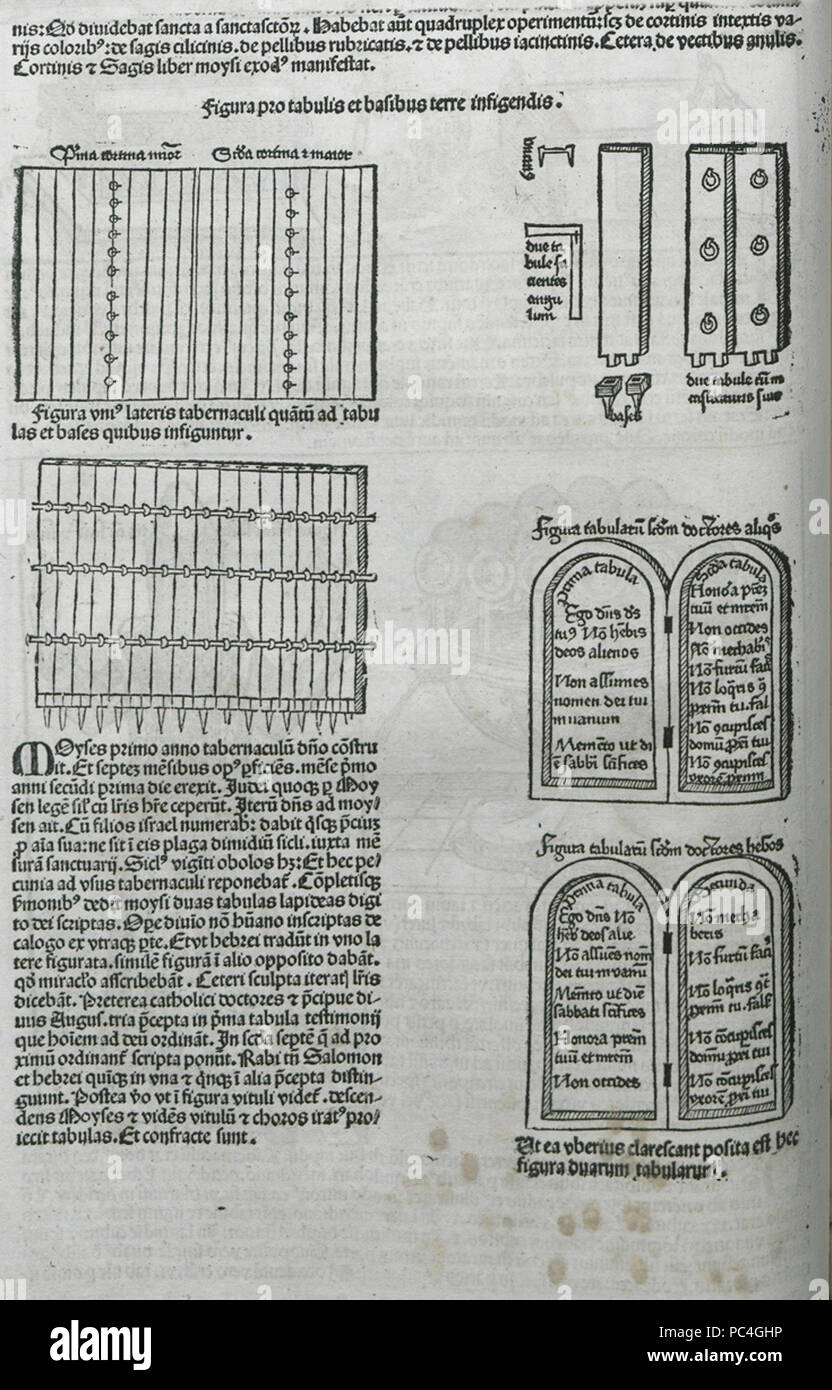 nis: Qd diuidebat sancta a sanctasctoꝝ. Habebat aūt quadruplex operimentū: scꝫ de cortinis intextis va-
rijs coloribꝰ: de sagis cilicinis. de pellibus rubricatis. ⁊ de pellibus iacinctinis. Cetera de vectibus anulis.
Cortinis ⁊ Sagis liber moysi exodꝰ manifestat.
Figura pro tabulis et basibus terre infigendis.
Pima cortina minor Scd̄a cortina ⁊ maior
Figura vniꝰ lateris tabernaculi quātū ad tabu
las et bases quibus infiguntur.
MOyses primo anno tabernaculū dn̄o cōstru
it. Et septeꝫ mēsibus opꝰ ꝑficiēs. mēse pͥmo
anni secūdi prima die erexit. Iudei quoqꝫ ꝑ Moy
sen legē sil̓ cū lr̄is hr̄e ceperūt. Iterū dn̄s ad moy/
sen ait. Cū filios israel numerabꝭ: dabit qͥsqꝫ p̄ciuꝫ
ꝓ aīa sua: ne sit ī eis plaga dimidiū sicli. iuxta mē
surā sanctuarij. Siclꝰ vigīti obolos hꝫ: Et hec pe/
cunia ad vsus tabernaculi reponebat̄. Cōpletisqꝫ
ẜmonibꝰ dedit moysi duas tabulas lapideas digi
to dei scriptas. Oꝑe diuīo nō hūano inscriptas de
calogo ex vtraqꝫ ꝑte. Et vt hebrei tradūt in vno la
tere figurata. similē figurā ī alio opposito dabāt.
qd̄ miracl̓o asscribebāt. Ceteri sculpta iteratꝭ lr̄is
dicebāt. Preterea catholici doctores ⁊ p̄cipue di-
uus Augus. tria p̄cepta in pͥma tabula testimonij
que hoīem ad deū ordināt. In scd̄a septē q̄ ad pro
ximū ordinant̄ scripta ponūt. Rabi tn̄ Salomon
et hebrei quīqꝫ in vna ⁊ qͥnqꝫ ī alia p̄cepta distin-
guunt. Postea v̓o vt ī figura vituli videt̄. descen-
dens Moyses ⁊ vidēs vitulū ⁊ choros iratꝰ pro/
iecit tabulas. Et confracte sunt.
due ta
bule fa
cientes
angu
lum
bases
due tabule cum
incastraturis suis
Figura tabularū scd̄m doctores aliqͦs
Prima tabula
Ego dn̄s ds̄
tuꝰ Nō hēbis
deos alienos
Non assumes
nomen dei tui
in vanum
Memēto vt di
ē sabbi sctīfices
Scd̄a tabula
Honora pr̄eꝫ
tuū et mr̄em
Non occides
Nō mechabꝭ
Nō furtū facꝭ
Nō loqͣris ꝯ
pͬximū tu. fal
Nō ꝯcupisces
domū ꝓxi tui
Nō ꝯcupisces
vxorē ꝓximi
Figura tabularū scd̄m doctores hebͦos
Prima tabula
Ego dn̄s Nō
hēbꝭ deos alie.
Nō assūes nom̄
dei tui in vanū
Memēto vt diē
sabbati sctīfices
Honora pr̄em
tuū et mr̄em
Non occides
Secunda
Nō mecha
beris
Nō furtū facꝭ
Nō loqͣris ꝯt̄
pͬximū tu. fals̄
Nō cōcupisces
domū ꝓxi tui
Nō cōcupisces
vxorē ꝓxi tui
Ut ea vberius clarescant posita est hec
figura duarum tabularum.
alamy
PC4GHP
www.alamy.com